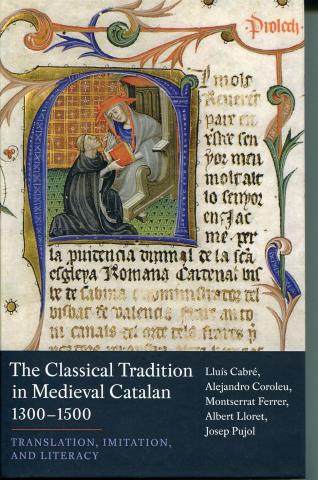 Prolech
molt
Reuerent
pare en
xpiste sen
yor meu
molt alt
lo senyor
en Jac
me per
la diuinal de la sca
esgleya Romana Cardenal bis
be de sabina e administrador del
visbat de valencia. Frare anto
ni canals del orde dels frares
The Classical Tradition
in Medieval Catalan
1300–1500
TRANSLATION, IMITATION,
AND LITERACY
Lluís Cabré,
Alejandro Coroleu,
Montserrat Ferrer,
Albert Lloret,
Josep Pujol